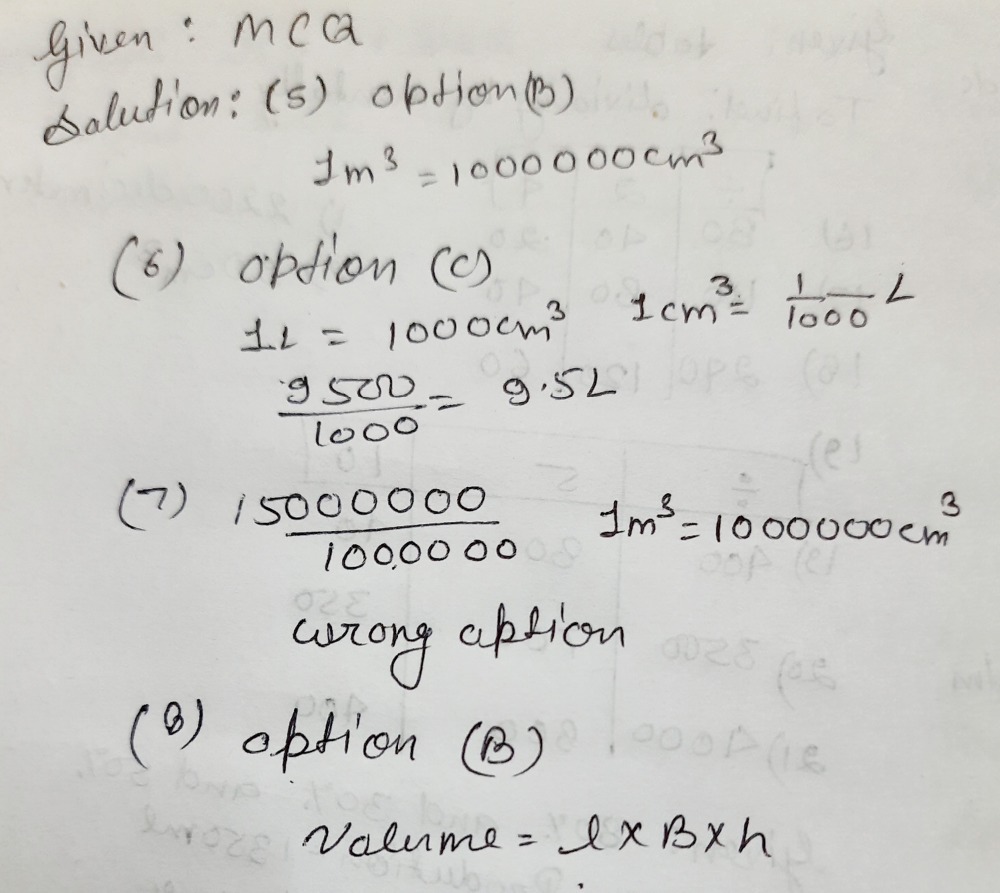 Given : MCQ
Solution: (5) option (B)
1m³ = 1000000cm³
(6) option (C)
1L = 1000cm³ 1cm³ = 1/1000 L
9500/1000 = 9.5L
(7) 15000000/1000000 1m³ = 1000000cm³
wrong option
(8) option (B)
Volume = l x B x h